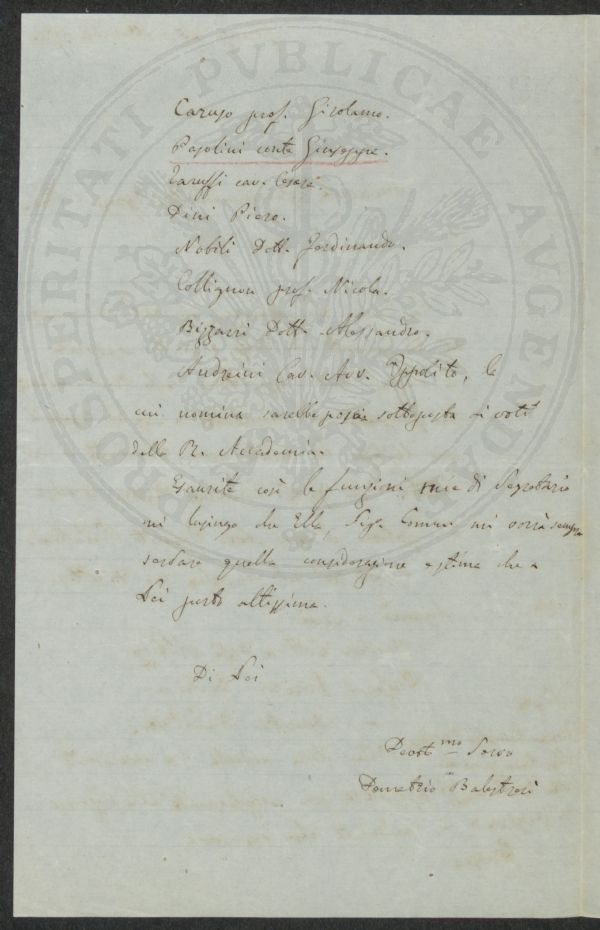 PROSPERITATI PVBLICAE AVGENDAE
Caruso prof. Girolamo.
Pasolini conte Giuseppe.
Taruffi cav. Cesare.
Dini Piero.
Nobili Dott. Ferdinando.
Collignon prof. Nicola.
Bizzarri Dott. Alessandro.
Andreini Cav. Avv. Ippolito, le
cui nomina sarebbe sottoposta ai voti
della R. Accademia.
Esaurite così le funzioni mie di Segretario
mi lusingo che Ella, Sigr. Comm. mi vorrà sempre
serbare quella considerazione e stima che a
Lei porto altissima.
Di Lei
Devotmo Servo
Demetrio Balestreri